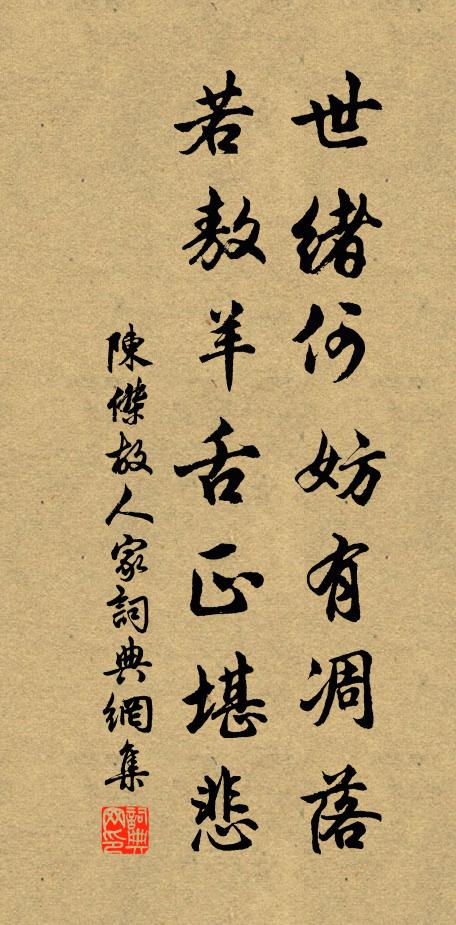 世緒何妨有凋落
若敖羊舌正堪悲
陳傑故人家詞典網集
詞典網印